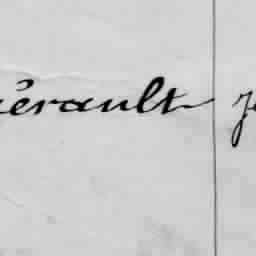 érault